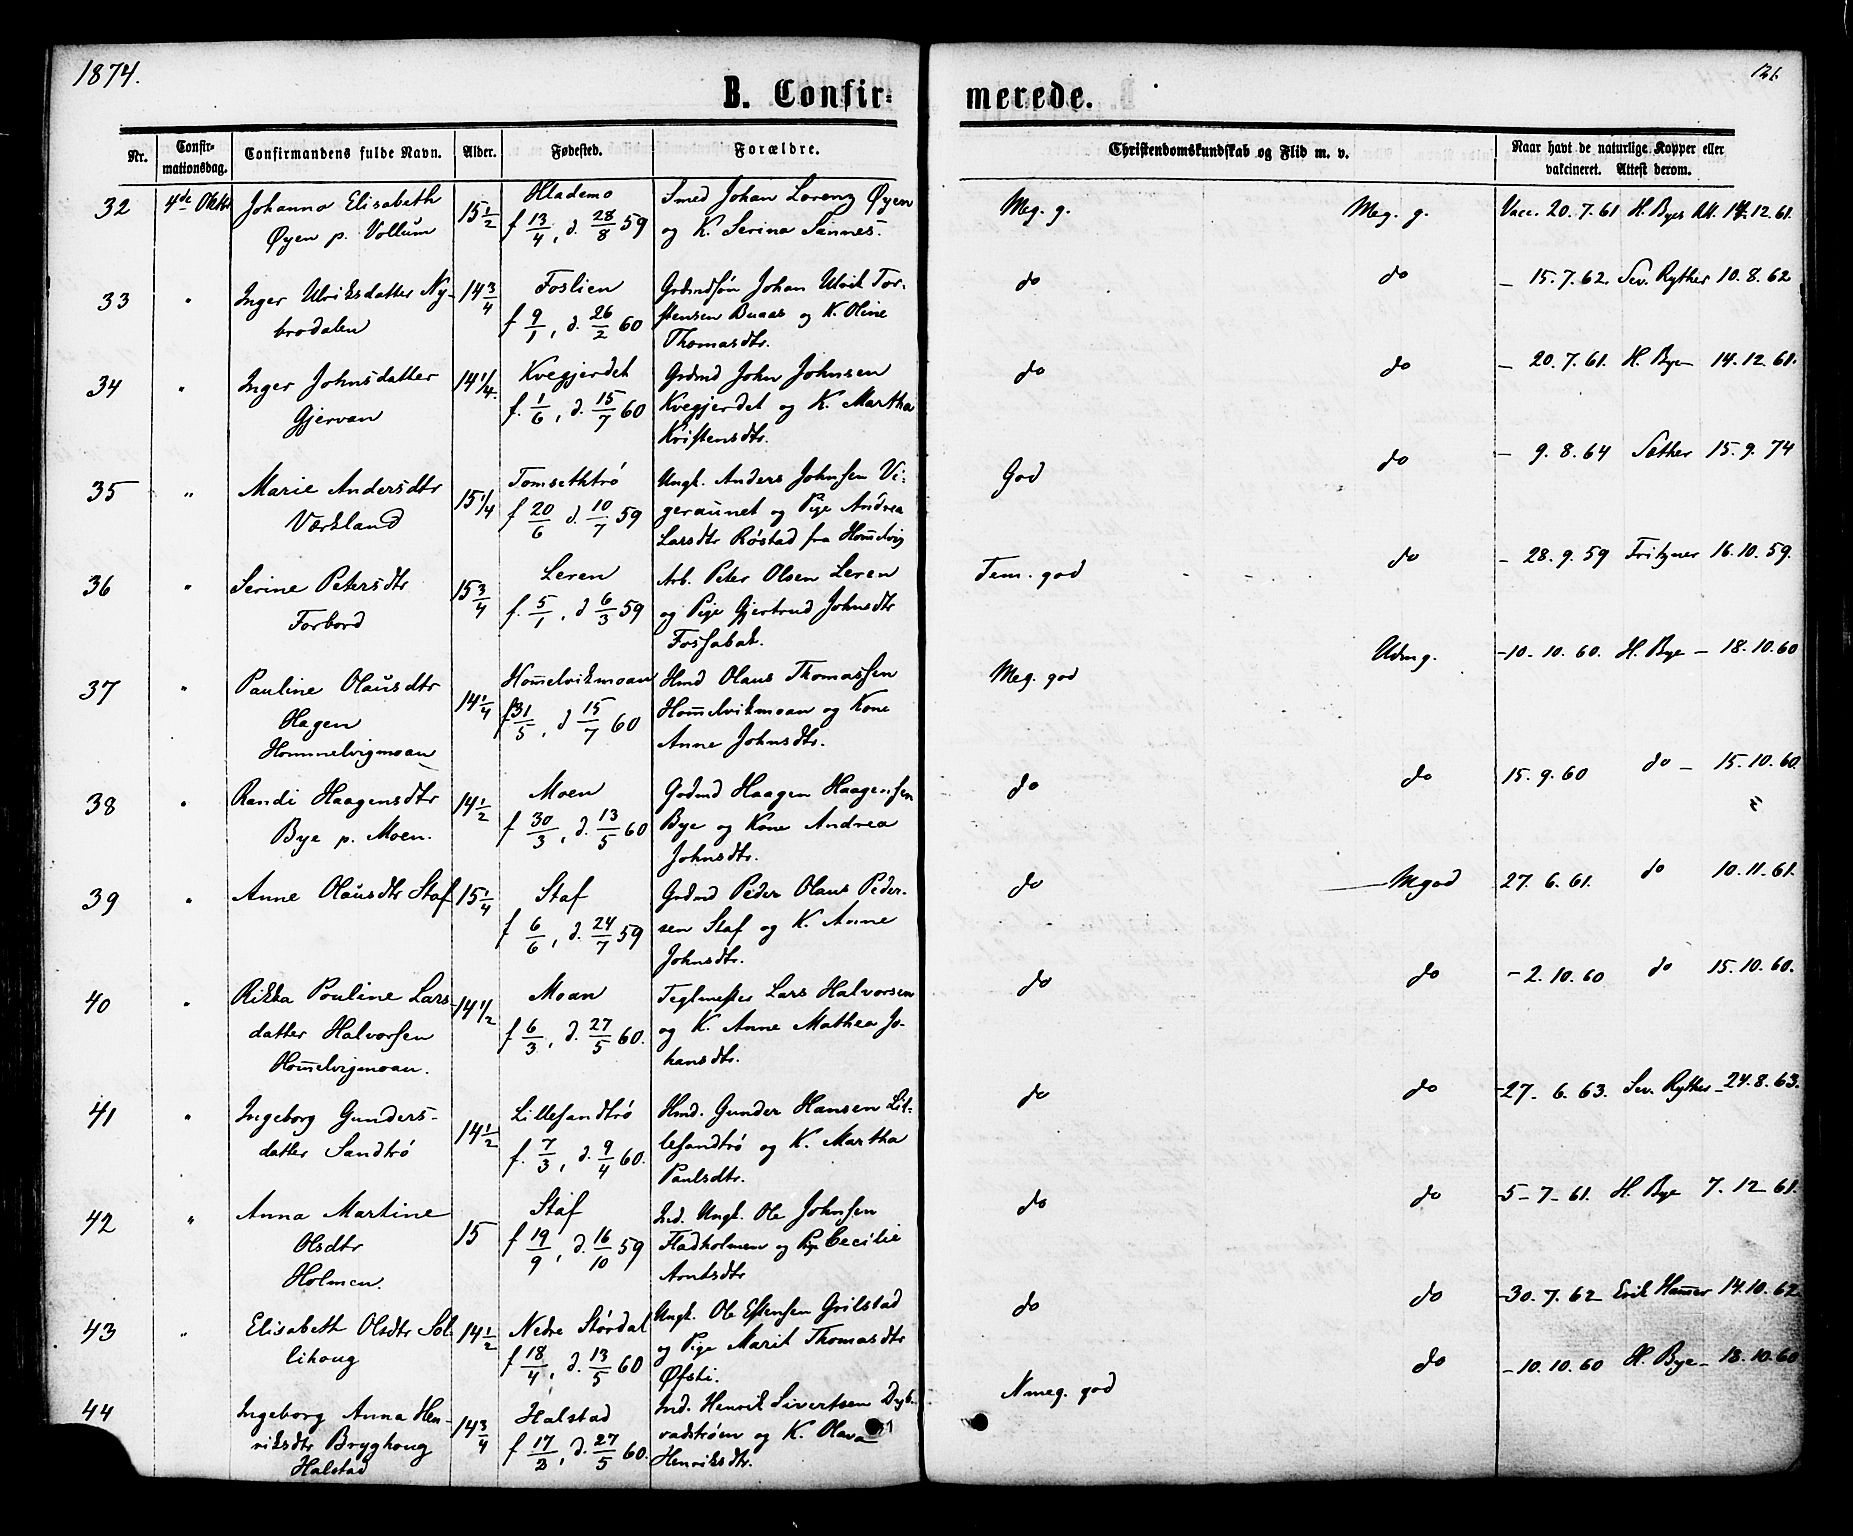 1874.
126
B. Confirmerede.
Nr. Confirmationsdag. Confirmandens fulde Navn. Alder. Fødested. Forældre. Christendomskundskab og Flid m. v. Naar havt de naturlige Kopper eller vakcineret. Attest derom.
32 4de Oktbr Johanna Elisabeth 15 1/2 Smed Johan Lorenz Øyen Meg. g. Meg. g. Vacc. 20. 7. 61 H. Bye 12. 61.
Øyen p. Vollum f 13/4, d. 28/8 59 og K. Serina Sannes.
33 " Inger Ulriksdatter Ny- 14 3/4 Foslien Grdmdsøn Johan Ulrik Tor- do do – 15. 7. 62. Sev. Rÿther 10. 8. 62
brodalen f 9/1, d. 26/2 60 stensen Buaas og K. Oline
Thomasdtr.
34 " Inger Johnsdatter 14 1/4 Kvegjerdet Grdmd John Johnsen do do – 20. 7. 61. H. Bye 14. 12 61.
Gjervan f. 1/6, d. 15/7 60 Kvegjerdet og K. Martha
Kristensdtr.
35 " Marie Andersdtr 15 1/4 Tomsethtrø Ungk. Anders Johnsen Vi- God do – 9. 8. 64 Sæther 15. 9. 74
Værkland f 20/6 d. 10/7 59 geraunet og Pige Andrea
Larsdtr Røstad fra Hom̅elvig
36 " Serine Petersdtr 15 3/4 Leren Arb. Peter Olsen Leren Tem. god do – 28. 9. 59 Fritzner 16. 10. 59.
Forbord f. 5/1, d 6/3 59 og Pige Gjertrud Johnsdtr
37 " Pauline Olausdtr 14 1/4 Hom̅elvikmoan Hmd Olaus Thomassen Meg. god Udm g. – 10. 10. 60. H. Bye – 18. 10. 60
Hagen f 31/5, d 15/7 60 Hom̅elvikmoan og Kone
Hommelvigmoan Anne Johnsdtr.
38 " Randi Haagensdtr 14 1/2 Moen Grdmd Haagen Haagensen do do 15. 9. 60 do – 15. 10. 60.
Bye p. Moen. f 30/3, d. 13/5 60 Bye og Kone Andrea
Johnsdtr.
39 " Anne Olausdtr Staf 15 1/4 Staf Grdmd Peder Olaus Peder- do Mgod 27. 6. 61. do 10. 11. 61.
f 6/6, d. 24/7 59 sen Staf og K. Anne
Johnsdtr.
40 " Rikka Pouline Lars- 14 1/2 Moan Teglmester Lars Halvorsen do do – 2. 10. 60 do 15. 10. 60.
datter Halvorsen f 6/3, d. 27/5 60. og K. Anne Mathea Jo-
Hom̅elvigmoan. hansdtr.
41 " Ingeborg Gunders- 14 1/2 Lillesandtrø Hmd. Gunder Hansen Lil- do do – 27. 6. 63. Sev. Rÿther – 24. 8. 63.
datter Sandtrø f. 7/3, d. 9/4 60. lesandtrø og K. Martha
Paulsdtr.
42 " Anna Martine 15 Staf Ind. Ungk. Ole Johnsen do do – 5 – 7 – 61. H. Bye 7. 12 – 61.
Olsdtr f 19/9, d. 16/10 59 Fladholmen og Pige Cecilie
Holmen. Arntsdtr
43 " Elisabeth Olsdtr Sol- 14 1/2 Nedre Størdal Ungk. Ole Estensen Grilstad do do – 30. 7. 62 Erik Hanser 14. 10. 62.
lihoug f 18/4, d. 13/5 60 og Pige Marit Thomasdtr
Øfsti.
44 Ingeborg Anna Hen- 14 3/4 Halstad Ind. Henrik Sivertsen Dyb- N meg. god do – 10. 10. 60 H. Bye – 18. 10. 60
riksdtr Bryghoug f 17/2, d. 27/5 60. vadstrøen og K. Olava
Halstad Henriksdtr.